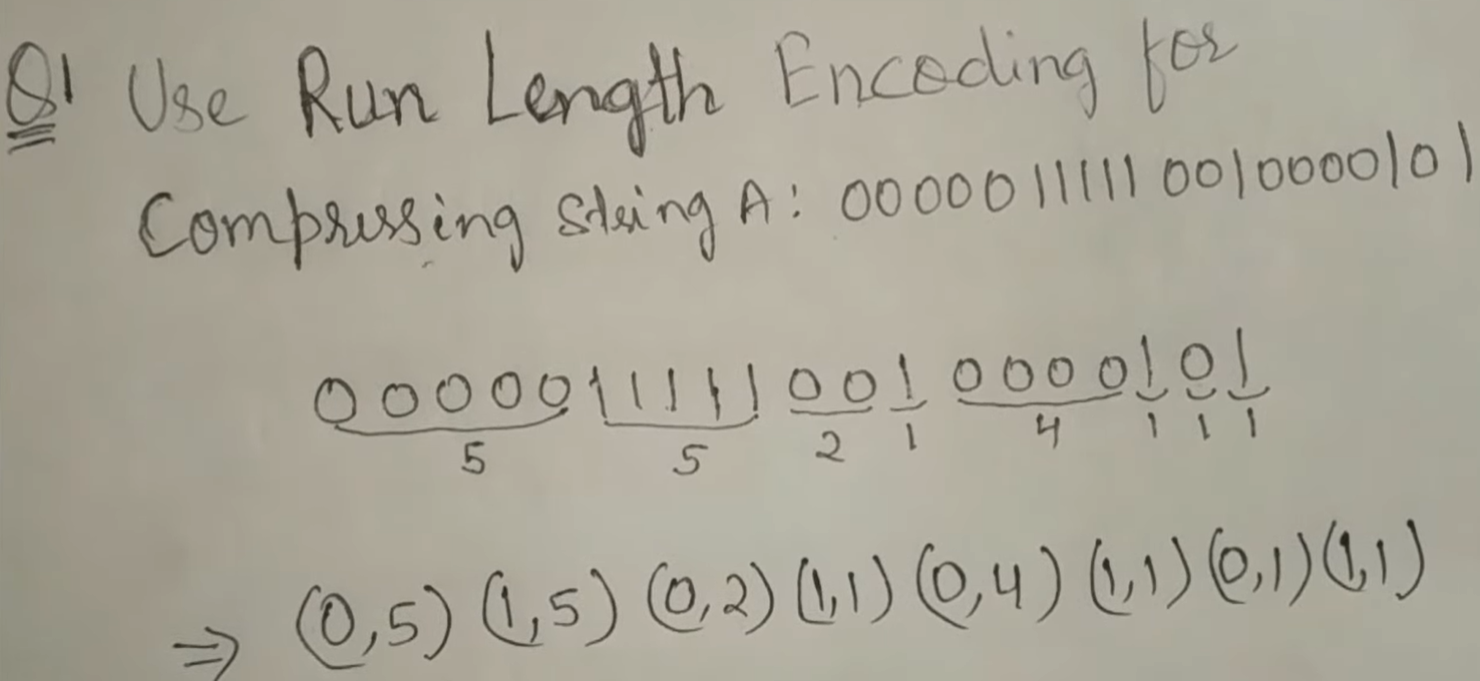 Q1 Use Run Length Encoding for
Compressing String A: 0000011111001000010 1
00000 11111 001 0000101
5 5 2 1 4 1 1 1
⇒ (0,5) (1,5) (0,2) (1,1) (0,4) (1,1) (0,1) (1,1)